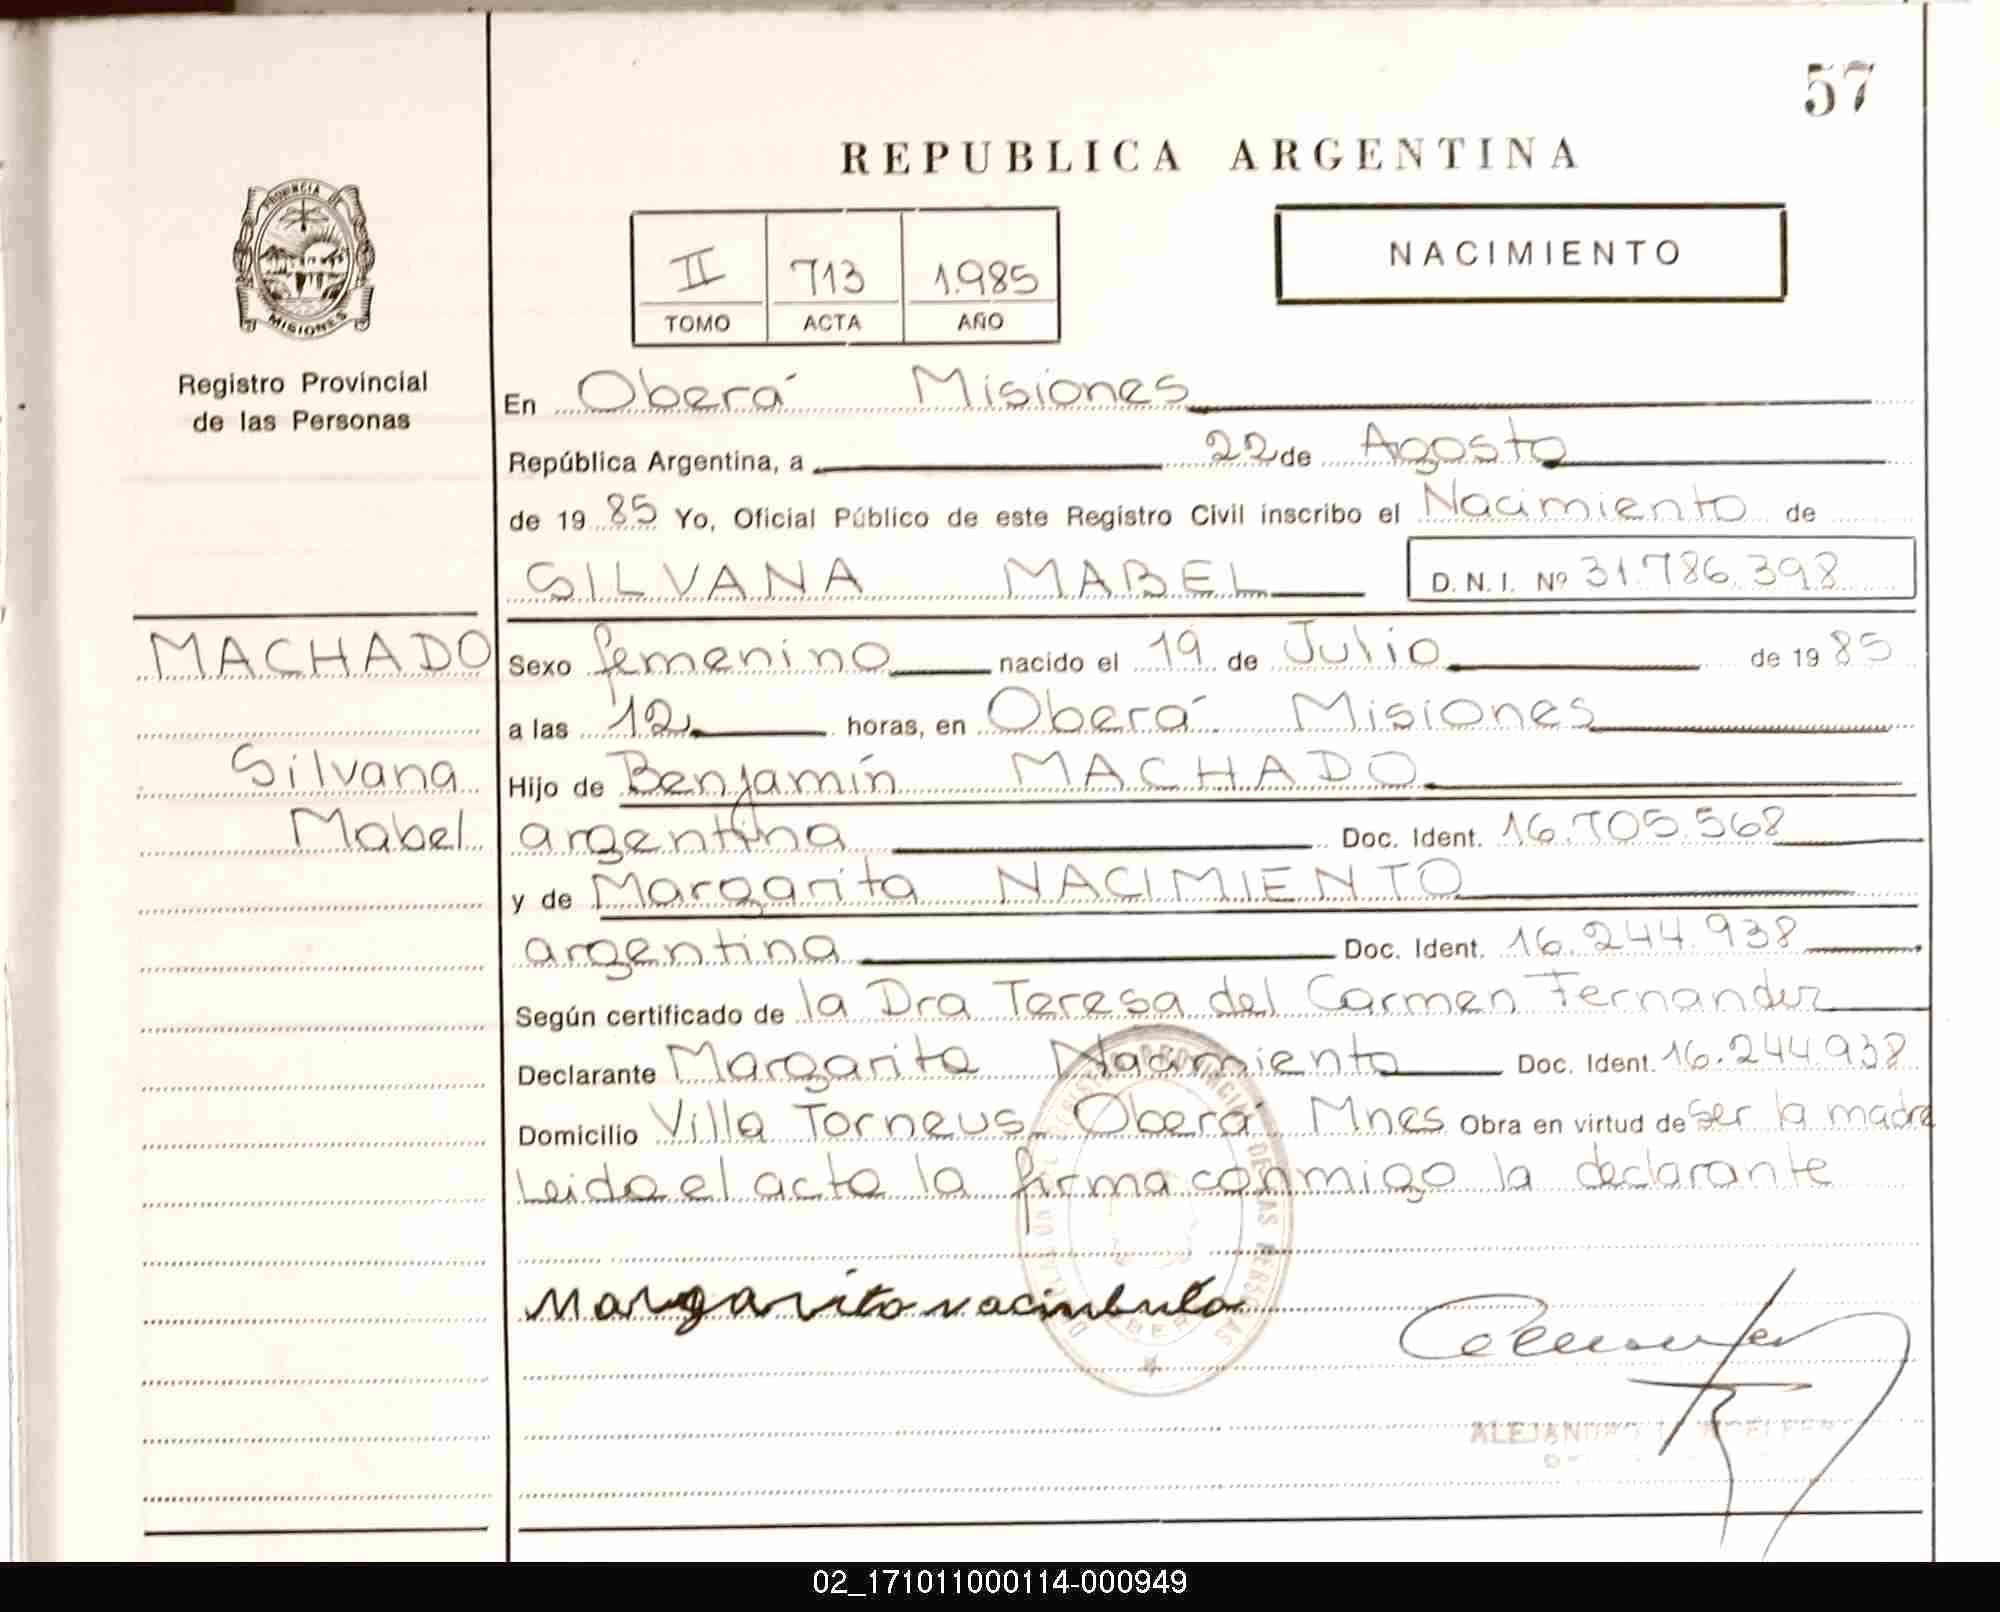 57
REPUBLICA ARGENTINA
PROVINCIA DE
MISIONES
II 713 1.985
TOMO ACTA AÑO
NACIMIENTO
Registro Provincial
de las Personas
En Oberá Misiones
República Argentina, a 22 de Agosto
de 19 85 Yo, Oficial Público de este Registro Civil inscribo el Nacimiento de
SILVANA MABEL D. N. I. Nº 31.786.398
MACHADO
Silvana
Mabel
Sexo femenino nacido el 19 de Julio de 19 85
a las 12 horas, en Oberá Misiones
Hijo de Benjamín MACHADO
argentina Doc. Ident. 16.705.568
y de Margarita NACIMIENTO
argentina Doc. Ident. 16.244.938
Según certificado de la Dra Teresa del Carmen Fernandez
Declarante Margarita Nacimiento Doc. Ident. 16.244.938
Domicilio Villa Torneus Oberá Mnes Obra en virtud de ser la madre
Leida el acta la firma conmigo la declarante
Margarita
DE LAS PERSONAS
02_171011000114-000949